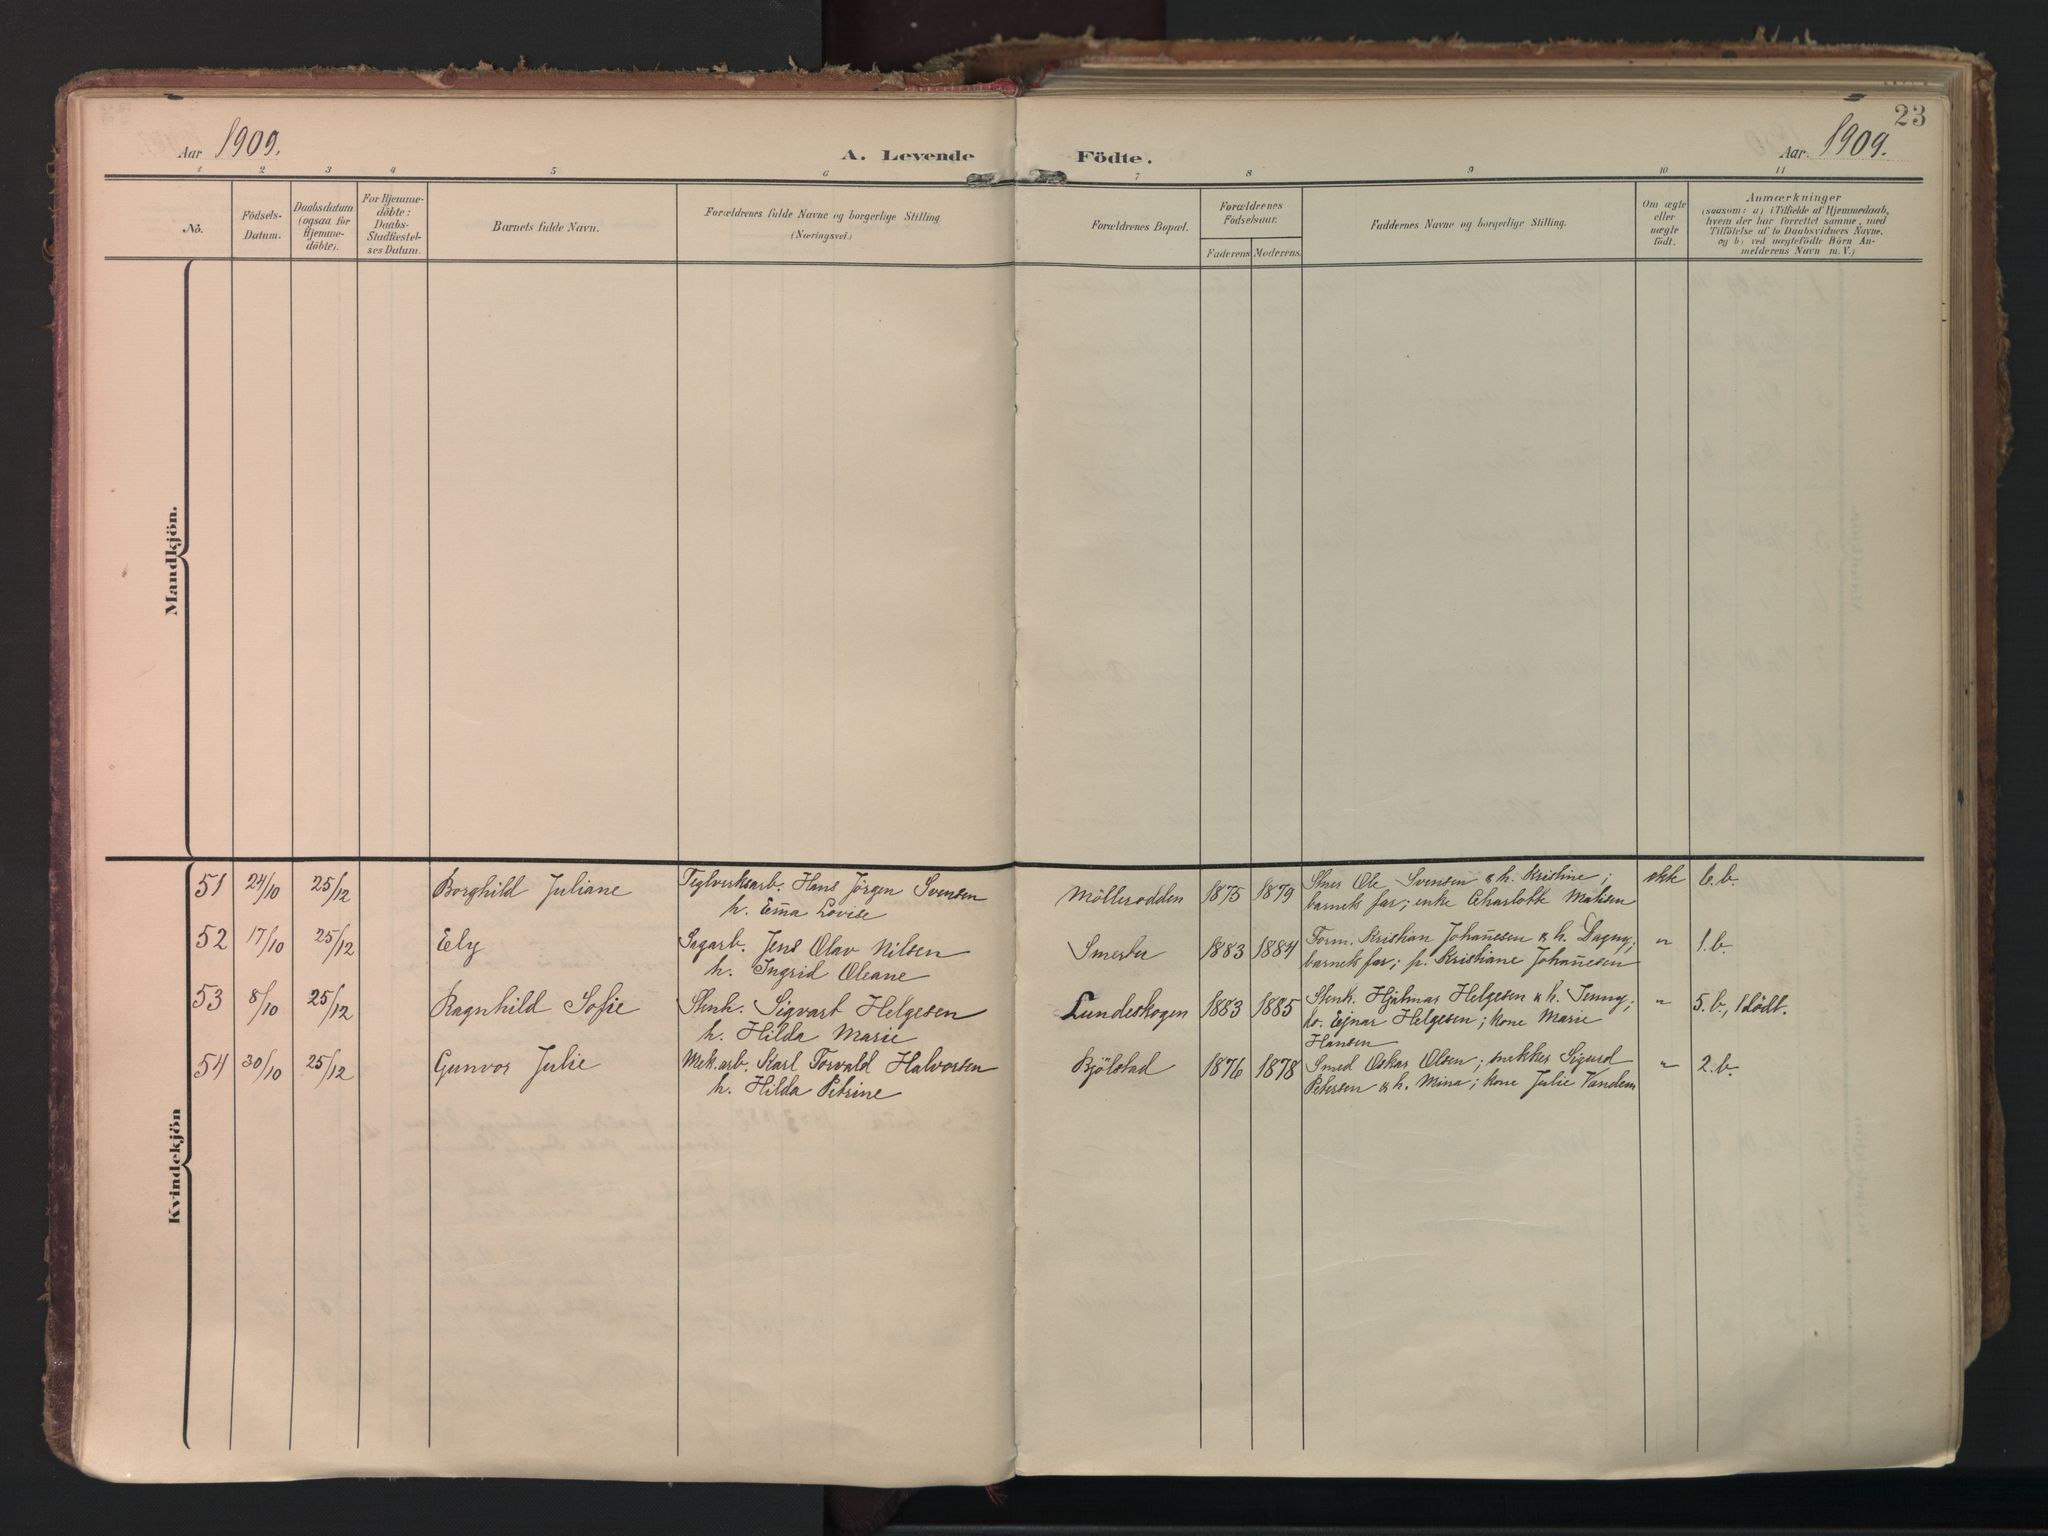 23
Aar 1909.
A. Levende Födte.
Aar. 1909.
1 2 3 4 5 6 7 8 9 10 11
No.
Födsels-
Datum.
Daabsdatum
(ogsaa for
Hjemme-
döbte).
For Hjemme-
döbte:
Daabs-
Stadfæstel-
ses Datum.
Barnets fulde Navn.
Forældrenes fulde Navne og borgerlige Stilling
(Næringsvei.)
Forældrenes Bopæl.
Forældrenes
Födselsaar.
Faderens Moderens.
Faddernes Navne og borgerlige Stilling.
Om ægte
eller
uægte
födt.
Anmærkninger
(saasom: a) i Tilfælde af Hjemmedaab,
hvem der har forrettet samme, med
Tilföielse af to Daabsvidners Navne.
og b) ved uægtefödte Börn An-
melderens Navn m. V.)
Mandkjön.
Kvindekjön
51 24/10 25/12 Borghild Juliane Teglverksarb. Hans Jörgen Svensen Möllerodden 1875 1879 Ole Svensen & h. Kristine; ekte 6.b.
h. Emma Lovise barnets far; enke Charlotte Matisen
52 17/10 25/12 Ely Sagarb. Jens Olav Nilsen Smertu 1883 1884 Form. Kristian Johannesen & h. Dagny; " 1.b.
h. Ingrid Oleane barnets far; p. Kristiane Johannesen
53 8/10 25/12 Ragnhild Sofie Stenh. Sigvart Helgesen Lundeskogen 1883 1885 Stenh. Hjalmar Helgesen & h. Jenny; " 5.b., 1 dödt.
h. Hilda Marie Ejnar Helgesen; kone Marie
Hansen
54 30/10 25/12 Gunvor Julie Mek.arb. Karl Torvald Halvorsen Bjölstad 1876 1878 Smed Oskar Olsen; snekker Sigurd " 2.b.
h. Hilda Petrine Petersen & h. Mina; kone Julie Vandem